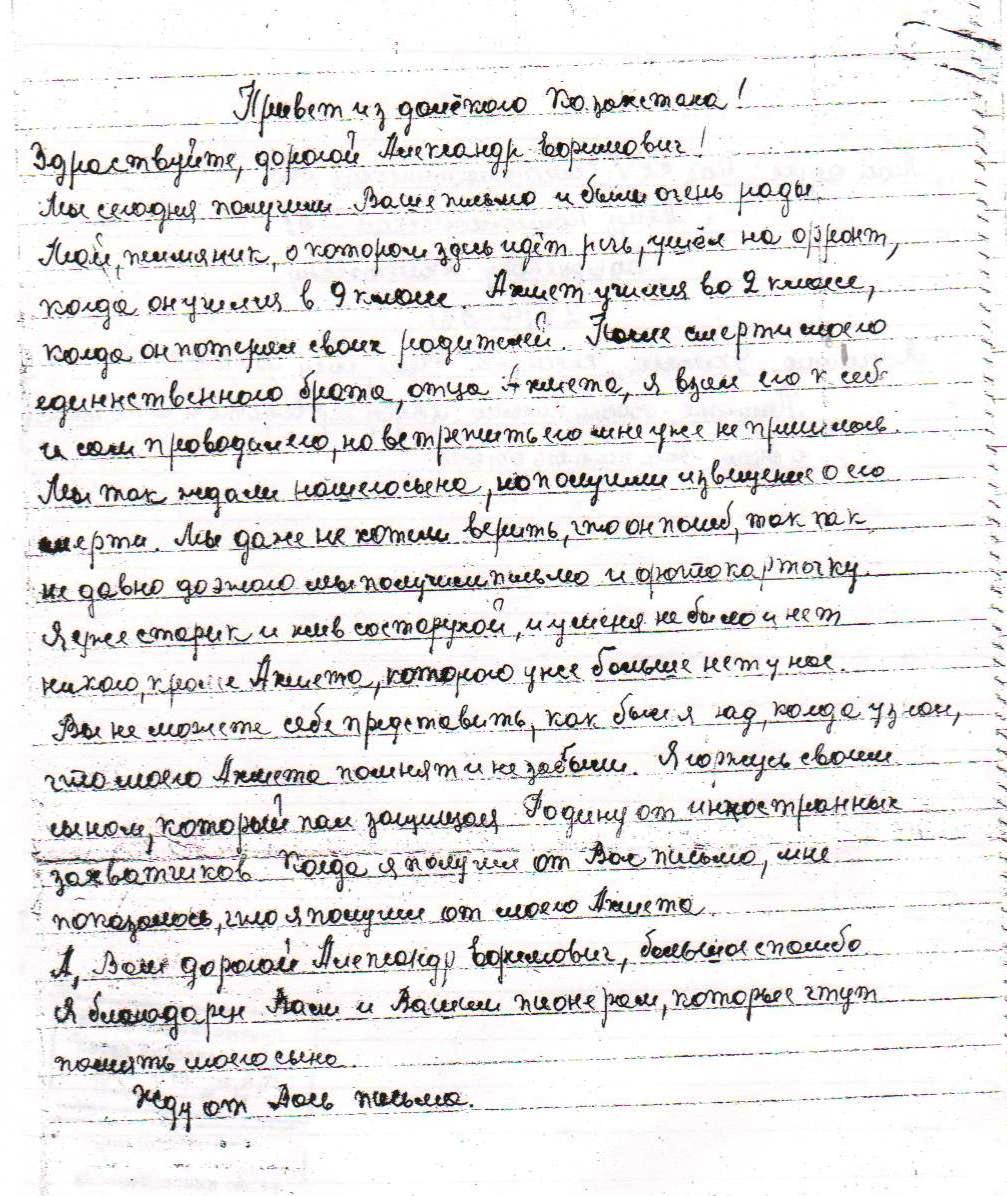 Привет из далёкого Казахстана!
Здраствуйте, дорогой Александр Ефимович!
Мы сегодня получили Ваше письмо и были очень рады.
Мой племяник, о котором здесь идёт речь, ушёл на фронт,
когда он учился в 9 классе. Ахмет учился во 2 классе,
когда он потерял своих родителей. После смерти моего
единственного брата, отца Ахмета, я взял его к себе
и сам проводил его, но встретить его мне уже не пришлось.
Мы так ждали нашего сына, но получили извещение о его
смерти. Мы даже не хотели верить, что он погиб, так как
не давно до этого мы получили письмо и фотокарточку.
Я уже старик и жив со старухой, и у меня не было и нет
никого, кроме Ахмета, которого уже больше нет у нас.
Вы не можете себе представить, как был я рад, когда узнал,
что моего Ахмета помнят и не забыли. Я горжусь своим
сыном, который пал защищая Родину от иностранных
захватчиков. Когда я получил от Вас письмо, мне
показалось, что я получил от моего Ахмета.
А, Вам дорогой Александр Ефимович, большое спасибо.
Я благодарен Вам и Вашим пионерам, которые чтут
память моего сына.
Жду от Вас письма.